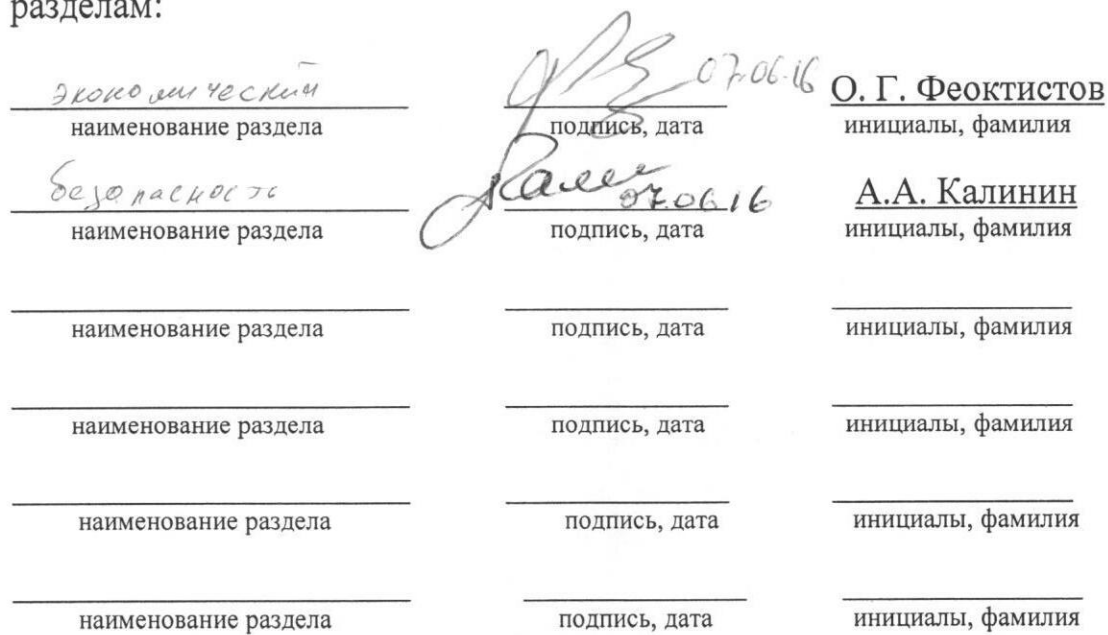 разделам:
экономический 07.06.16 О. Г. Феоктистов
наименование раздела подпись, дата инициалы, фамилия
безопасность 07.06.16 А.А. Калинин
наименование раздела подпись, дата инициалы, фамилия
наименование раздела подпись, дата инициалы, фамилия
наименование раздела подпись, дата инициалы, фамилия
наименование раздела подпись, дата инициалы, фамилия
наименование раздела подпись, дата инициалы, фамилия